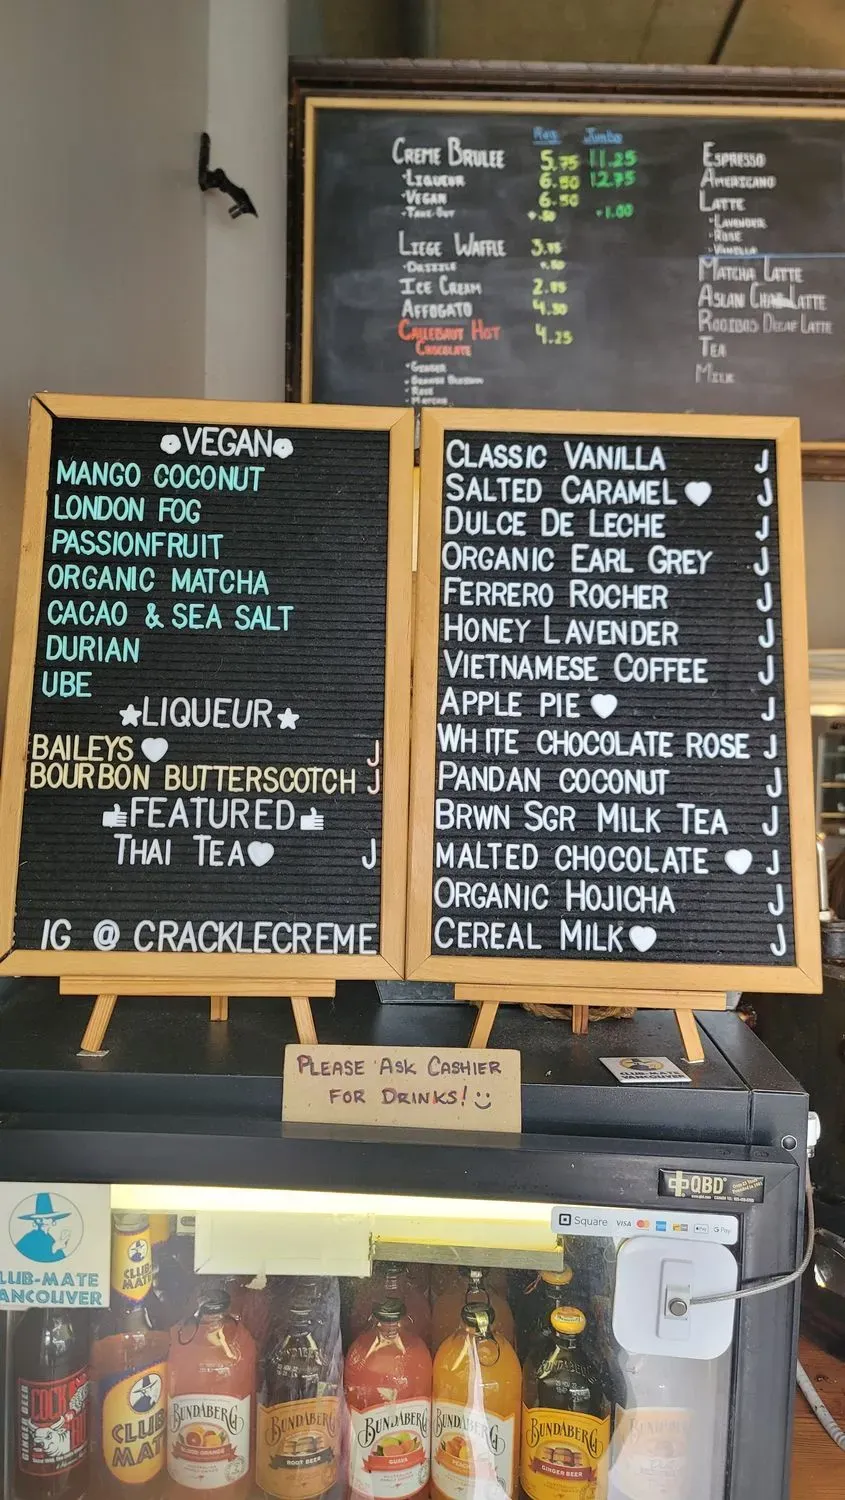 Reg Jumbo
CREME BRULEE 5.75 11.25
·LIQUEUR 6.50 12.75
·VEGAN 6.50
·TAKE OUT +.50 +1.00
LIEGE WAFFLE
·DRIZZLE
ICE CREAM
AFFOGATO 4.50
CALLEBAUT HOT 4.25
CHOCOLATE
·GINGER
·ORANGE BLOSSOM
·ROSE
·MATCHA
ESPRESSO
AMERICANO
LATTE
·LAVENDER
·ROSE
·VANILLA
MATCHA LATTE
ASLAN CHAI LATTE
ROOIBOS DECAF LATTE
TEA
MILK
VEGAN
MANGO COCONUT
LONDON FOG
PASSIONFRUIT
ORGANIC MATCHA
CACAO & SEA SALT
DURIAN
UBE
★LIQUEUR★
BAILEYS J
BOURBON BUTTERSCOTCH J
FEATURED
THAI TEA J
IG @ CRACKLECREME
CLASSIC VANILLA J
SALTED CARAMEL J
DULCE DE LECHE J
ORGANIC EARL GREY J
FERRERO ROCHER J
HONEY LAVENDER J
VIETNAMESE COFFEE J
APPLE PIE J
WHITE CHOCOLATE ROSE J
PANDAN COCONUT J
BRWN SGR MILK TEA J
MALTED CHOCOLATE J
ORGANIC HOJICHA J
CEREAL MILK J
PLEASE ASK CASHIER
FOR DRINKS!
CLUB-MATE
VANCOUVER
QBD
Square VISA
G Pay
LUB-MATE
ANCOUVER
CLUB
MATE
GINGER BEER
COCK
BULL
CLUB
MAT
BUNDABERG
BLOOD ORANGE
BUNDABERG
ROOT BEER
BUNDABERG
GUAVA
BUNDABERG
PEACH
BUNDABERG
GINGER BEER